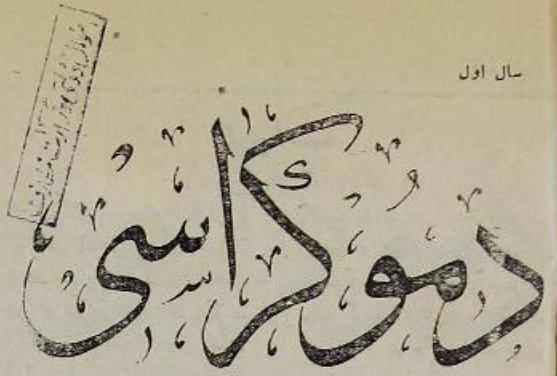 سال اول
دموکراسی